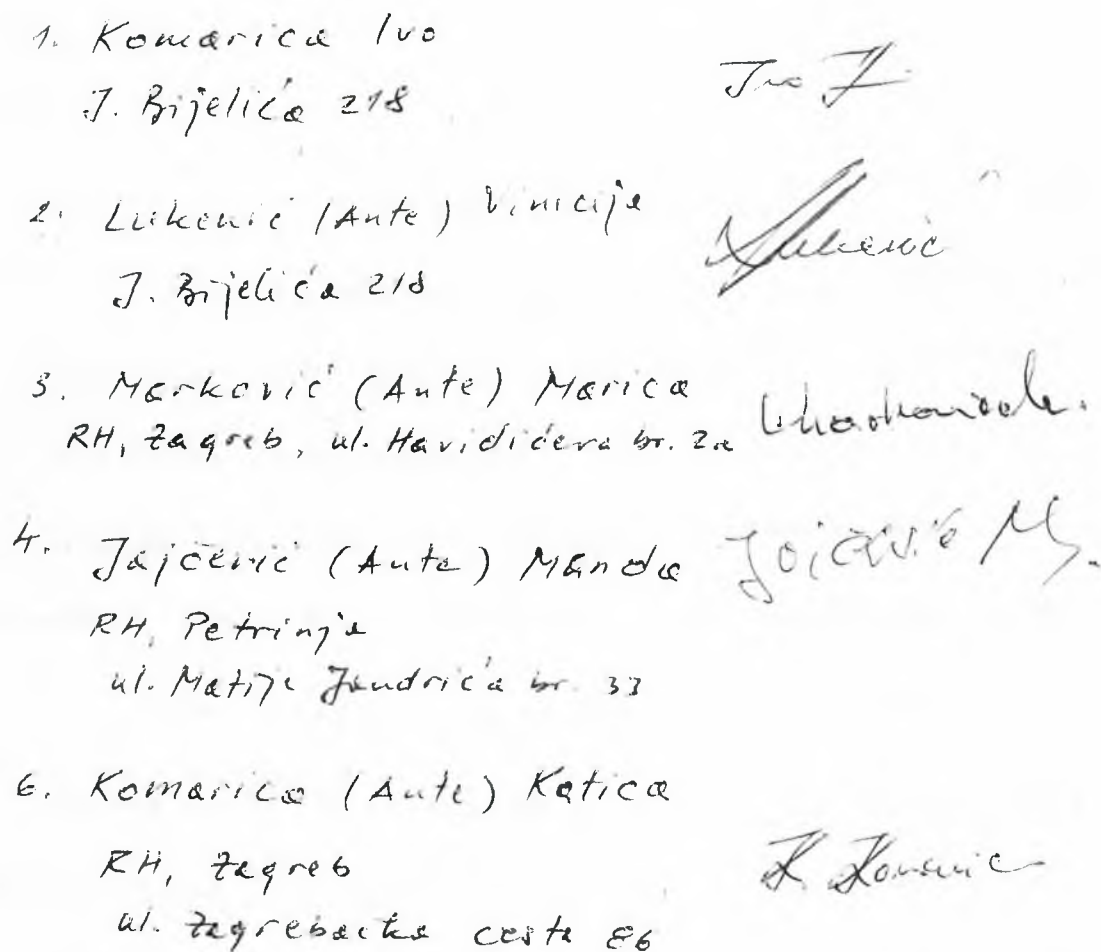 1. Komarica Ivo
J. Bijelića 218
2. Lukenić (Ante) Vinicije
Lukenić
J. Bijelića 218
3. Marković (Ante) Marica
RH, Zagreb, ul. Havidićeva br. 2a
4. Jajčević (Ante) Manda Jajčević M.
RH, Petrinja
ul. Matije Jandrića br. 33
6. Komarica (Ante) Katica
RH, Zagreb
ul. Zagrebačka cesta 86